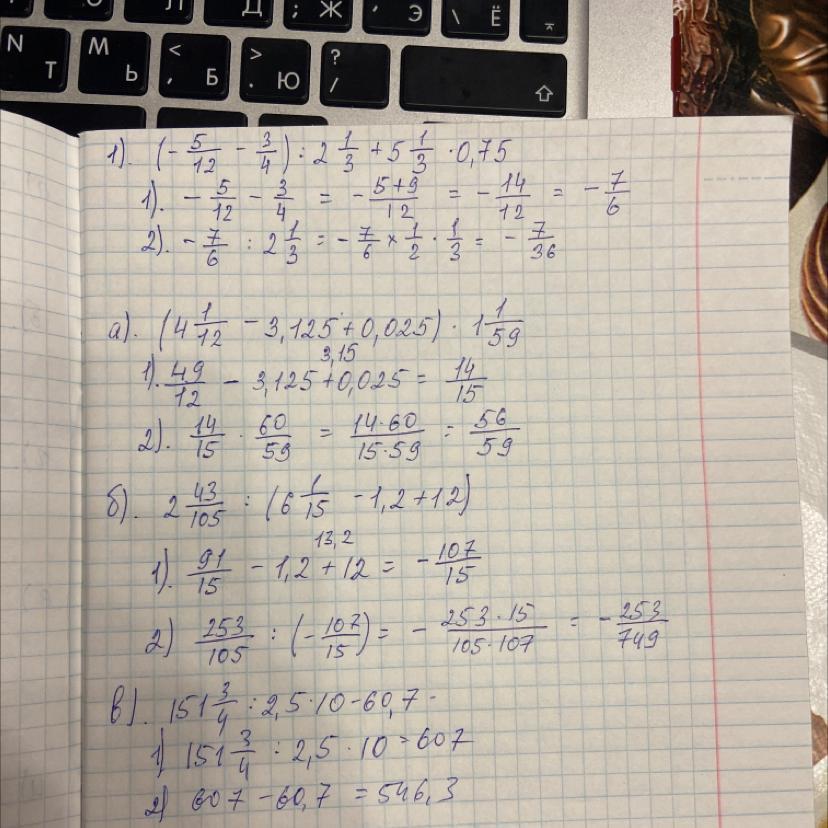 Д ; Ж , Э \ Ё
N Т М Ь < , Б > . Ю ? /
1). (-5/12 - 3/4) : 2 1/3 + 5 1/3 · 0,75
1). -5/12 - 3/4 = -(5+9)/12 = -14/12 = -7/6
2). -7/6 : 2 1/3 = -7/6 × 1/2 · 1/3 = -7/36
а). (4 1/12 - 3,125 + 0,025) · 1 1/59
3,15
1). 49/12 - 3,125 + 0,025 = 14/15
2). 14/15 · 60/59 = (14·60)/(15·59) = 56/59
б). 2 43/105 : (6 1/15 - 1,2 + 12)
13,2
1). 91/15 - 1,2 + 12 = -107/15
2) 253/105 : (-107/15) = -(253·15)/(105·107) = -253/749
в). 151 3/4 : 2,5 · 10 - 60,7 -
1) 151 3/4 : 2,5 · 10 = 607
2) 607 - 60,7 = 546,3